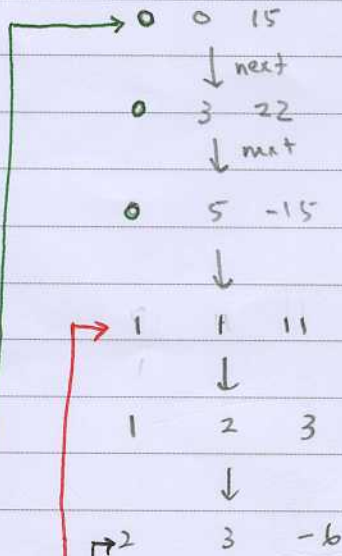 0 0 15
next
0 3 22
next
0 5 -15
1 1 11
1 2 3
2 3 -6